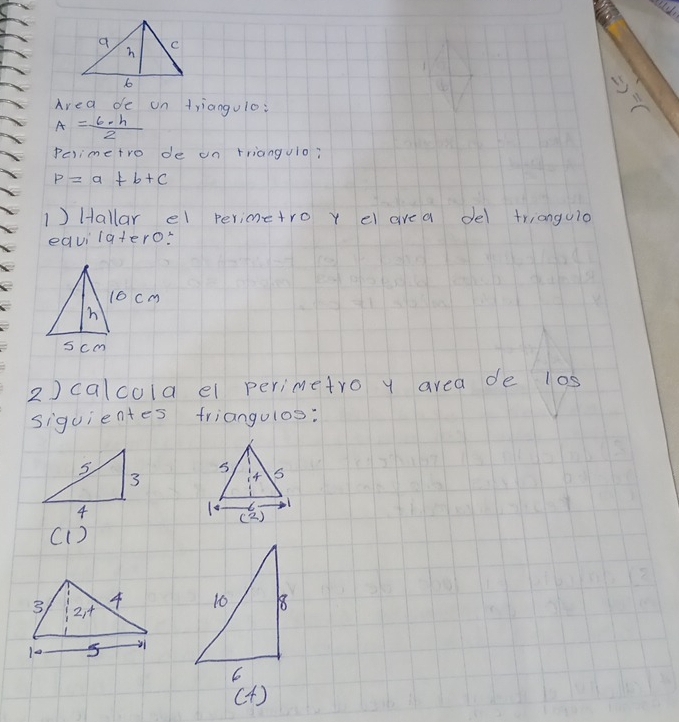 a h c
b
Area de un triangulo:
A = b·h
2
Perimetro de un triangulo:
P = a + b + c
1) Hallar el Perimetro y el area del triangulo
equilatero:
10 cm
h
5 cm
2) calcula el perimetro y area de los
siguientes triangulos:
5 3
4
(1)
5 4 5
6
(2)
3 2,4 4
5
10 8
6
(4)